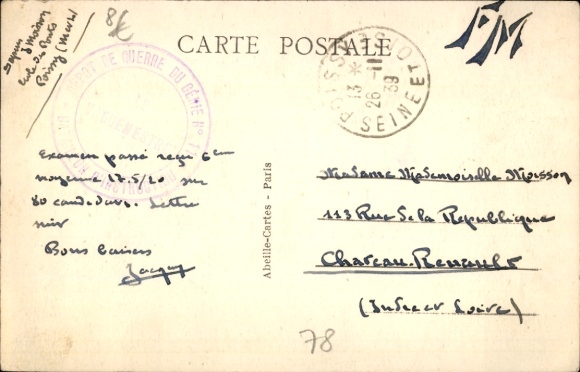 8€
CARTE POSTALE
FM
Poissy (
DEPOT DE GUERRE DU GÉNIE N°
POISSY
SEINE ET OISE
13 *
26 -11
39
Examen passé reçu 6em
moyenne 17.5/20 sur
80 candidats. Lettre
suit
Bons baisers
Jacques
Abeille-Cartes - Paris
Madame Mademoiselle Moisson
113 Rue de la République
Chateau Renault
(Indre et Loire)
78